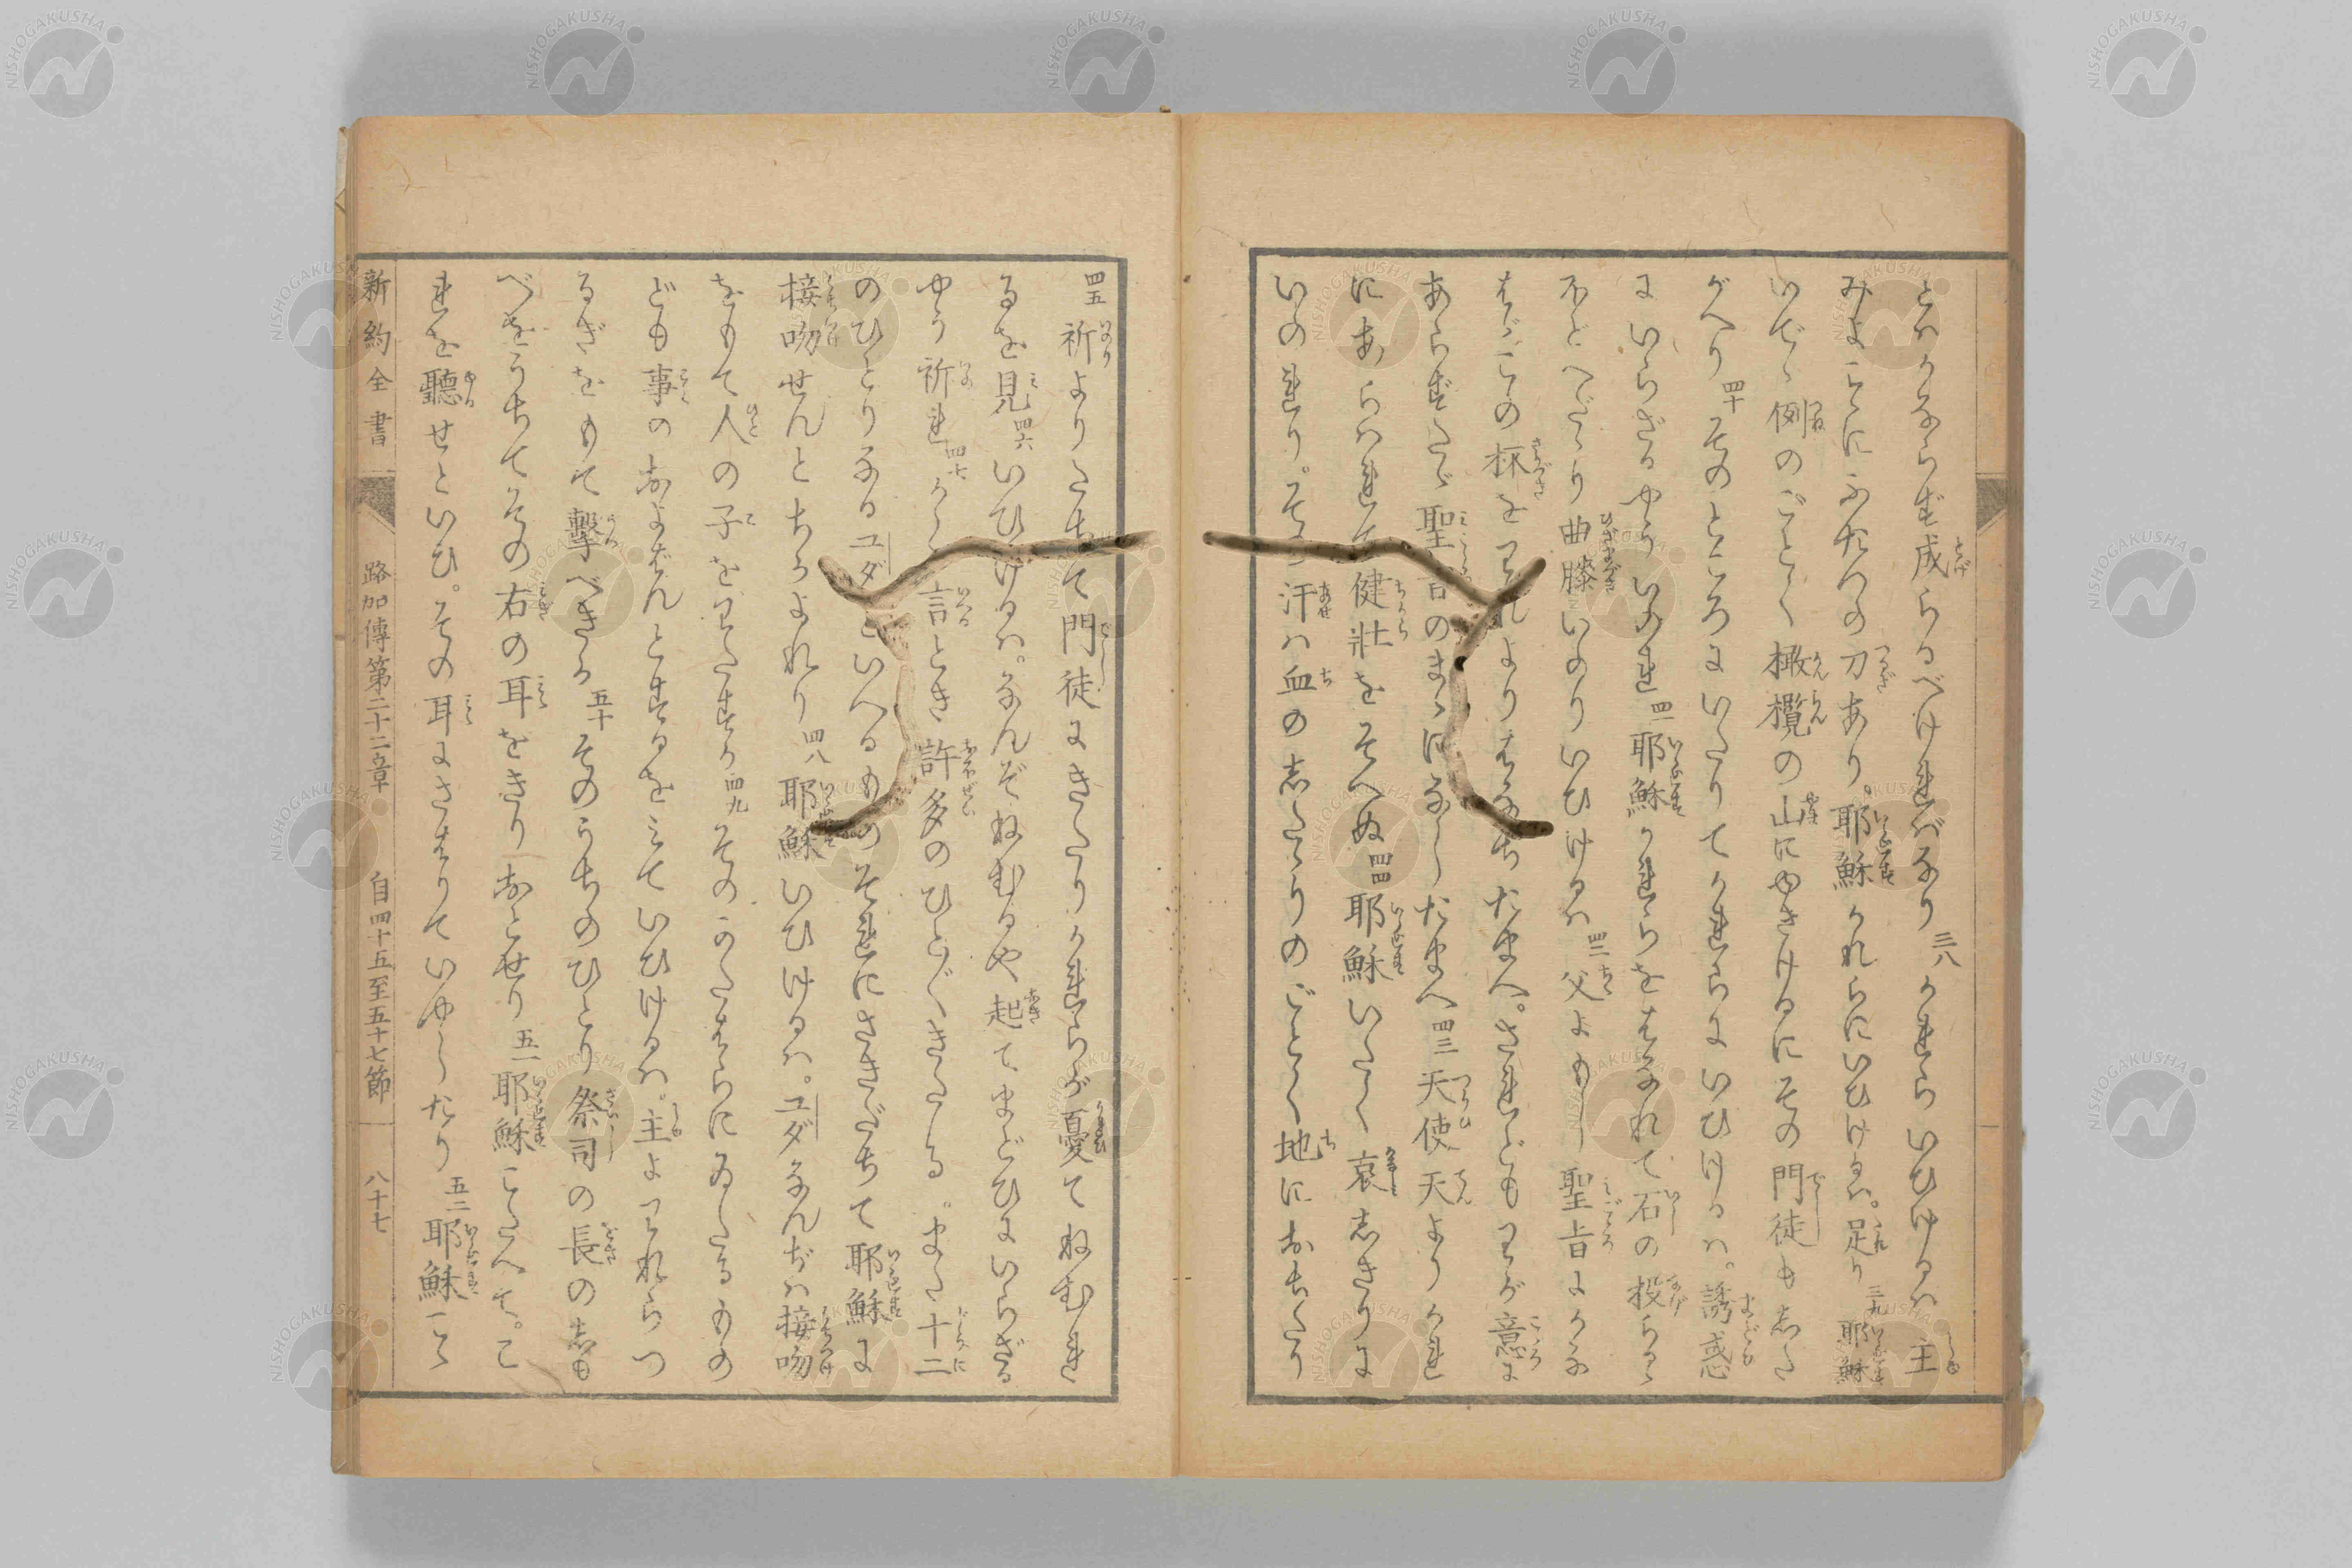 とハかならず成らるべければなり 三八 かれらいひけるハ主
みよこゝにふたつの刀あり。耶穌かれらにいひけるハ。足り 三九 耶穌
いでゝ例のごとく橄欖の山にゆきけるにその門徒もした
がへり 四十 そのところにいたりてかれらにいひけるハ。誘惑
にいらざるやういのれ 四一 耶穌かれらをはなれて石の投らるゝ
ほどへだゝり曲膝いのりいひけるハ 四二 父よもし聖旨にかな
はゞこの杯をわれよりはなちたまへ。されどもわが意に
あらずたゞ聖旨のまゝになしたまへ 四三 天使天よりかれ
にあらハれて健壯をそへぬ 四四 耶穌いたく哀しきりに
いのれり。その汗ハ血のしたゝりのごとく地におちたり
四五 祈よりたちて門徒にきたりかれらが憂てねむれ
るを見 四六 いひけるハ。なんぞねむるや起てまどひにいらざる
やう祈れ 四七 かく言るとき許多のひとびときたる。また十二
のひとりなるユダといへるものそれにさきだちて耶穌に
接吻せんとちかよれり 四八 耶穌いひけるハ。ユダなんぢハ接吻
をもて人の子をわたすか 四九 そのかたはらにゐたるもの
ども事のおよばんとするをみていひけるハ。主よわれらつ
るぎをもて擊べきか 五十 そのうちのひとり祭司の長のしも
べをうちてその右の耳をきりおとせり 五一 耶穌こたへて。こ
れを聽せといひ。その耳にさはりていやしたり 五二 耶穌こゝ
新約全書 路加傳第二十二章 自四十五至五十七節 八十七